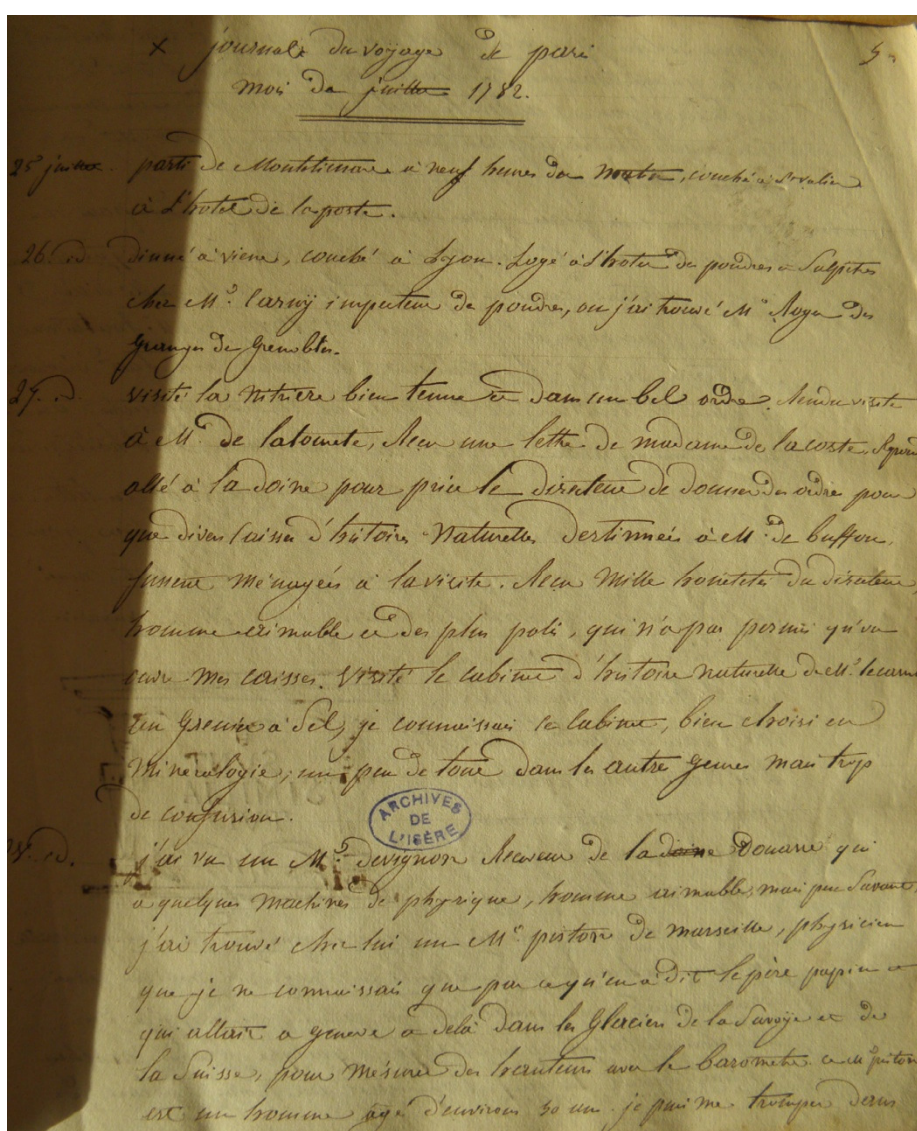 x journal du voyage de pari
5
mois de juillet 1782.
25 juillet. parti de Montelimar à neuf heures du matin, couché à St valier
à l'hotel de la poste.
26. d. dinné à viene, couché à Lyon. Logé à l'hotel des poudres et Salpetres
chez Mr. Carny inspecteur de poudres, ou j'ai trouvé Mr Roger des
Granges de Grenoble.
27. d. visité la nitriere bien tenue et dans un bel ordre. Rendu visite
à Mr. de latourete, Recu une lettre de madame de lacoste,
allé à la doine pour prier le directeur de donner des ordres pour
que divers caisses d'histoire Naturelles destinneés à Mr. de buffon,
fussent ménageés à la visite. Recu mille honetetés du directeur,
homme aimable et des plus poli, qui n'a pas permis qu'on
ouvre mes caisses. visité le cabinet d'histoire naturelle de Mr.
au Grenier à Sel, je connaissais ce cabinet, bien choisi en
Minéralogie, un peu de tout dans les autre genres mais trop
de confusion.
ARCHIVES DE L'ISÈRE
28. d. j'ai vu un Mr. devignon Receveur de la doane Douane qui
a quelques machines de physique, homme aimable, mais peu Savant.
j'ai trouvé chez lui un Mr. pistore de marseille, physicien
que je ne connaissais que par ce qu'en a dit le père papion et
qui allait a geneve et delà dans les Glaciers de la Savoye et de
la Suisse, pour mésurer des hauteurs avec le barometre. ce Mr pistore
est un homme agé d'environs 30 ans. je puis me tromper dans